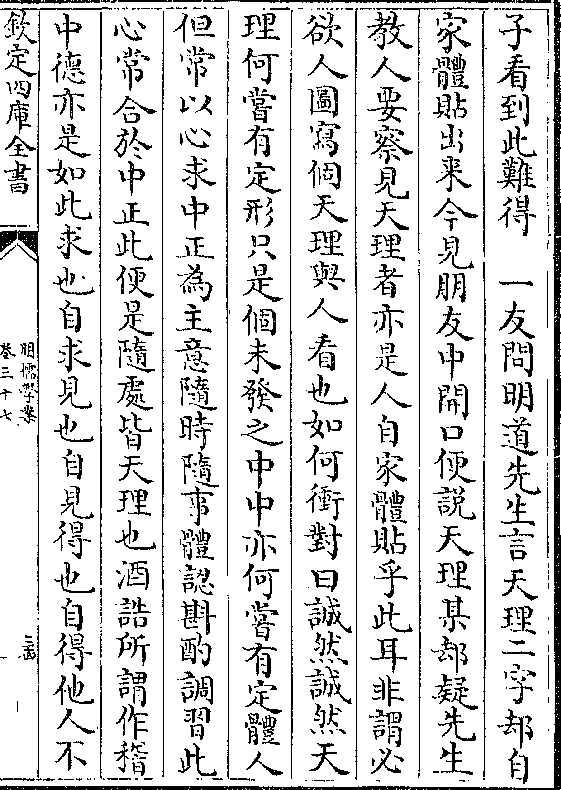 子看到此難得　一友問明道先生言天理二字却自
家體貼出来今見朋友中開口便説天理某却疑先生
教人要察見天理者亦是人自家體貼乎此耳非謂必
欲人圖寫個天理與人看也如何衝對曰誠然誠然天
理何嘗有定形只是個未發之中中亦何嘗有定體人
但常以心求中正為主意隨時隨事體認斟酌調習此
心常合於中正此便是隨處皆天理也酒誥所謂作稽
中德亦是如此求也自求見也自見得也自得他人不
欽定四庫全書
明儒學案
卷三十七